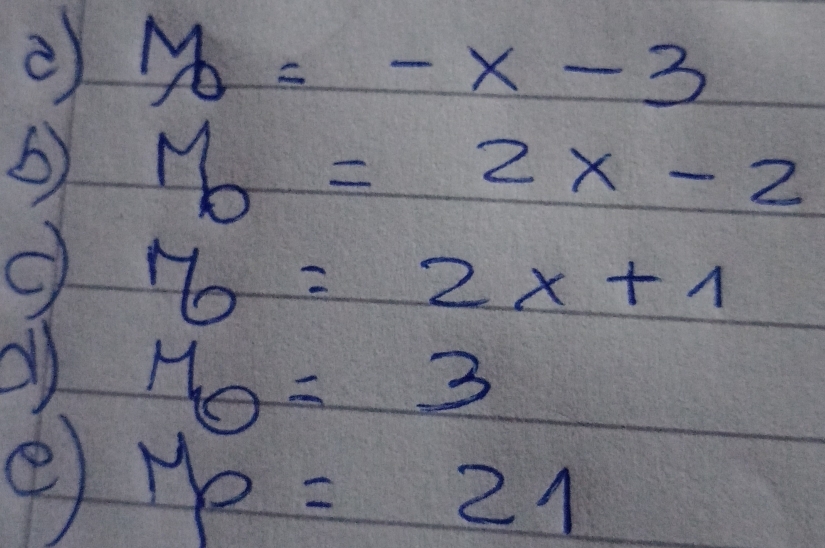 a) M₀ = - x - 3
b) M₀ = 2x - 2
c) M₀ = 2x + 1
d) M₀ = 3
e) Mp = 21